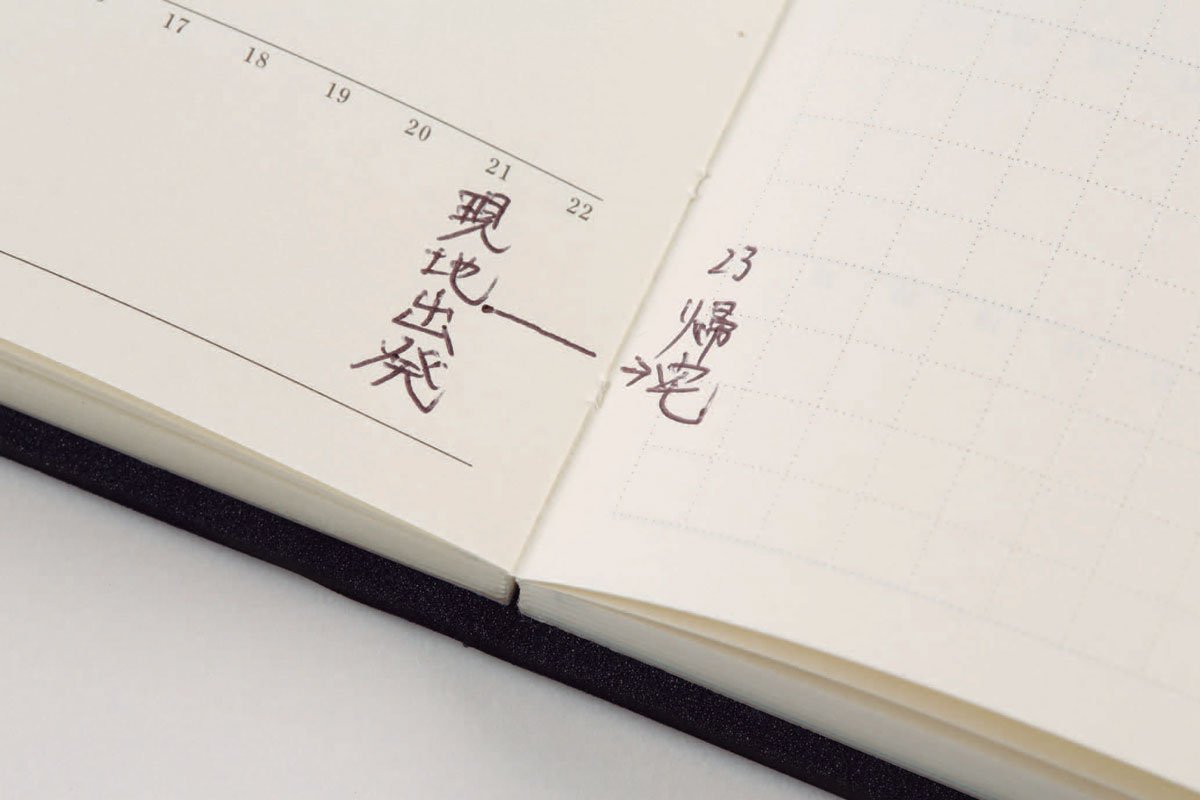 17
18
19
20
21
22
現地出発
23
帰宅
→